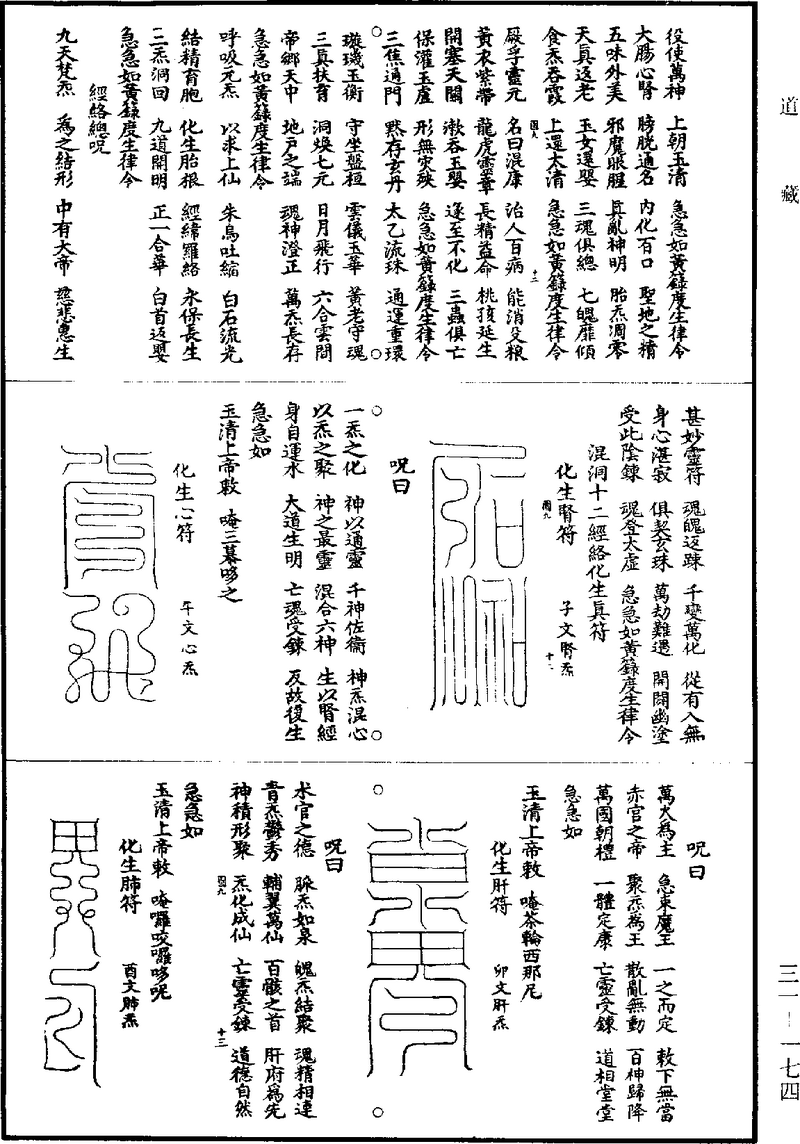 道藏
役使萬神 上朝玉清 急急如黃籙度生律令
大腸心腎 膀胱通名 內化百口 聖地之精
五味外美 邪魔眼腥 真亂神明 胎炁凋零
天真返老 玉女還嬰 三魂俱總 七魄靡傾
食炁吞霞 上還太清 急急如黃籙度生律令
厥孚靈元 名曰混康 治人百病 能消災粮
黃衣紫帶 龍虎靈章 長精益命 桃孩延生
開塞天關 漱吞玉嬰 遂至不化 三蟲俱亡
保灌玉廬 形無灾殃 急急如黃籙度生律令
三焦通門 黙存玄丹 太乙流珠 通運重環
璇璣玉衡 守坐盤桓 雲儀玉華 黃老守魂
三真扶育 洞煥七元 日月飛行 六合雲間
帝鄉天中 地戶之端 魂神澄正 萬炁長存
急急如黃籙度生律令
呼吸元炁 以求上仙 朱鳥吐縮 白石流光
結精育胞 化生胎根 經緯羅絡 永保長生
三炁洞回 九道開明 正一合華 白首返嬰
急急如黃籙度生律令
經絡總呪
九天梵炁 為之結形 中有大帝 慈悲惠生
甚妙靈符 魂魄返踈 千變萬化 從有入無
身心湛寂 俱契玄珠 萬劫難遇 開闢幽塗
受此陰鍊 魂登太虛 急急如黃籙度生律令
混洞十二經絡化生真符
化生腎符 子文腎炁
呪曰
一炁之化 神以通靈 千神佐衛 神炁混心
以炁之聚 神之最靈 混合六神 生以腎經
身自運水 大道生明 亡魂受鍊 反故復生
急急如
玉清上帝敕 唵三暮哆之
化生心符 午文心炁
呪曰
萬火為主 急束魔王 一之而定 敕下無當
赤宫之帝 聚炁為王 散亂無動 百神歸降
萬國朝禮 一體定康 亡靈受鍊 道相堂堂
急急如
玉清上帝敕 唵茶輪西那尼
化生肝符 卯文肝炁
呪曰
木官之德 脈炁如泉 魄炁結聚 魂精相連
青炁鬱秀 輔翼萬仙 百骸之首 肝府為先
神積形聚 炁化成仙 亡靈受鍊 道德自然
急急如
玉清上帝敕 唵囉咬囉哆呢
化生肺符 酉文肺炁
三一—一七四